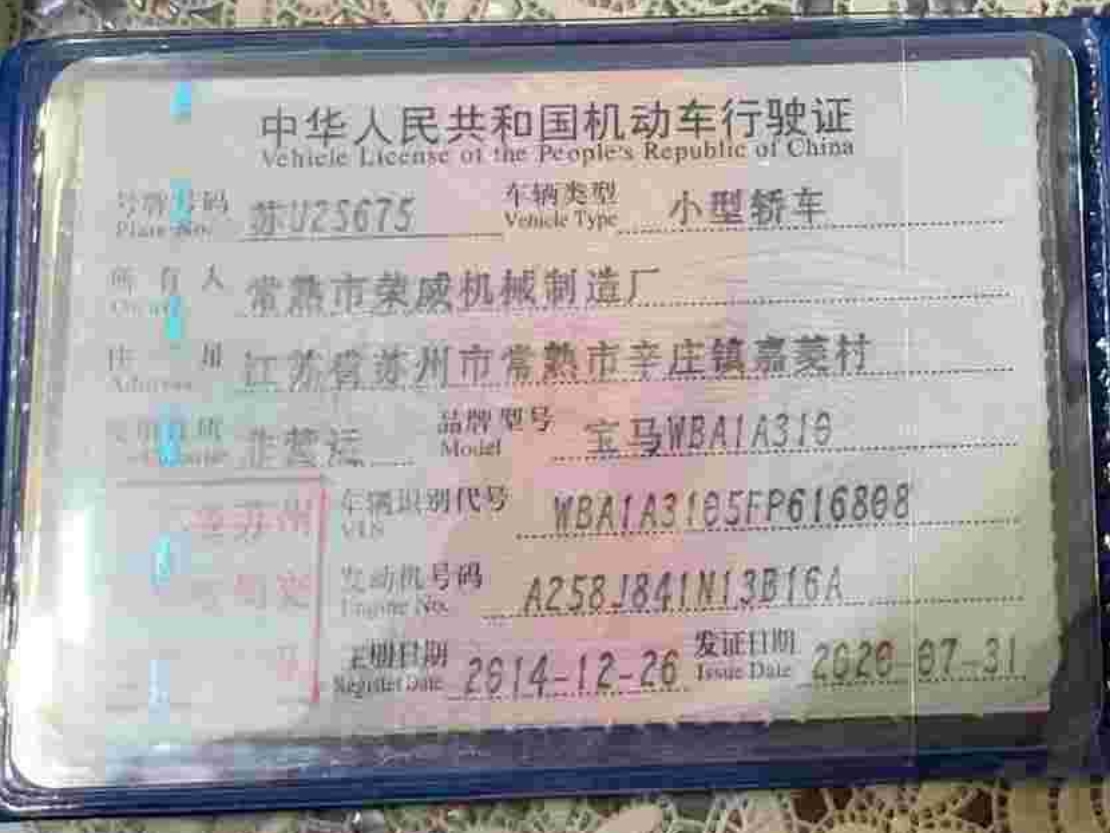 中华人民共和国机动车行驶证
Vehicle License of the People's Republic of China
号牌号码 苏U2S675 车辆类型 小型轿车
Plate No. Vehicle Type
所有人 常熟市荣威机械制造厂
住址 江苏省苏州市常熟市辛庄镇嘉菱村
Address
非营运 品牌型号 宝马WBA1A310
Model
车辆识别代号 WBA1A3105FP616808
VIN
发动机号码 A258J841N13B16A
Engine No.
注册日期 2014-12-26 发证日期 2020-07-31
Register Date Issue Date
苏州